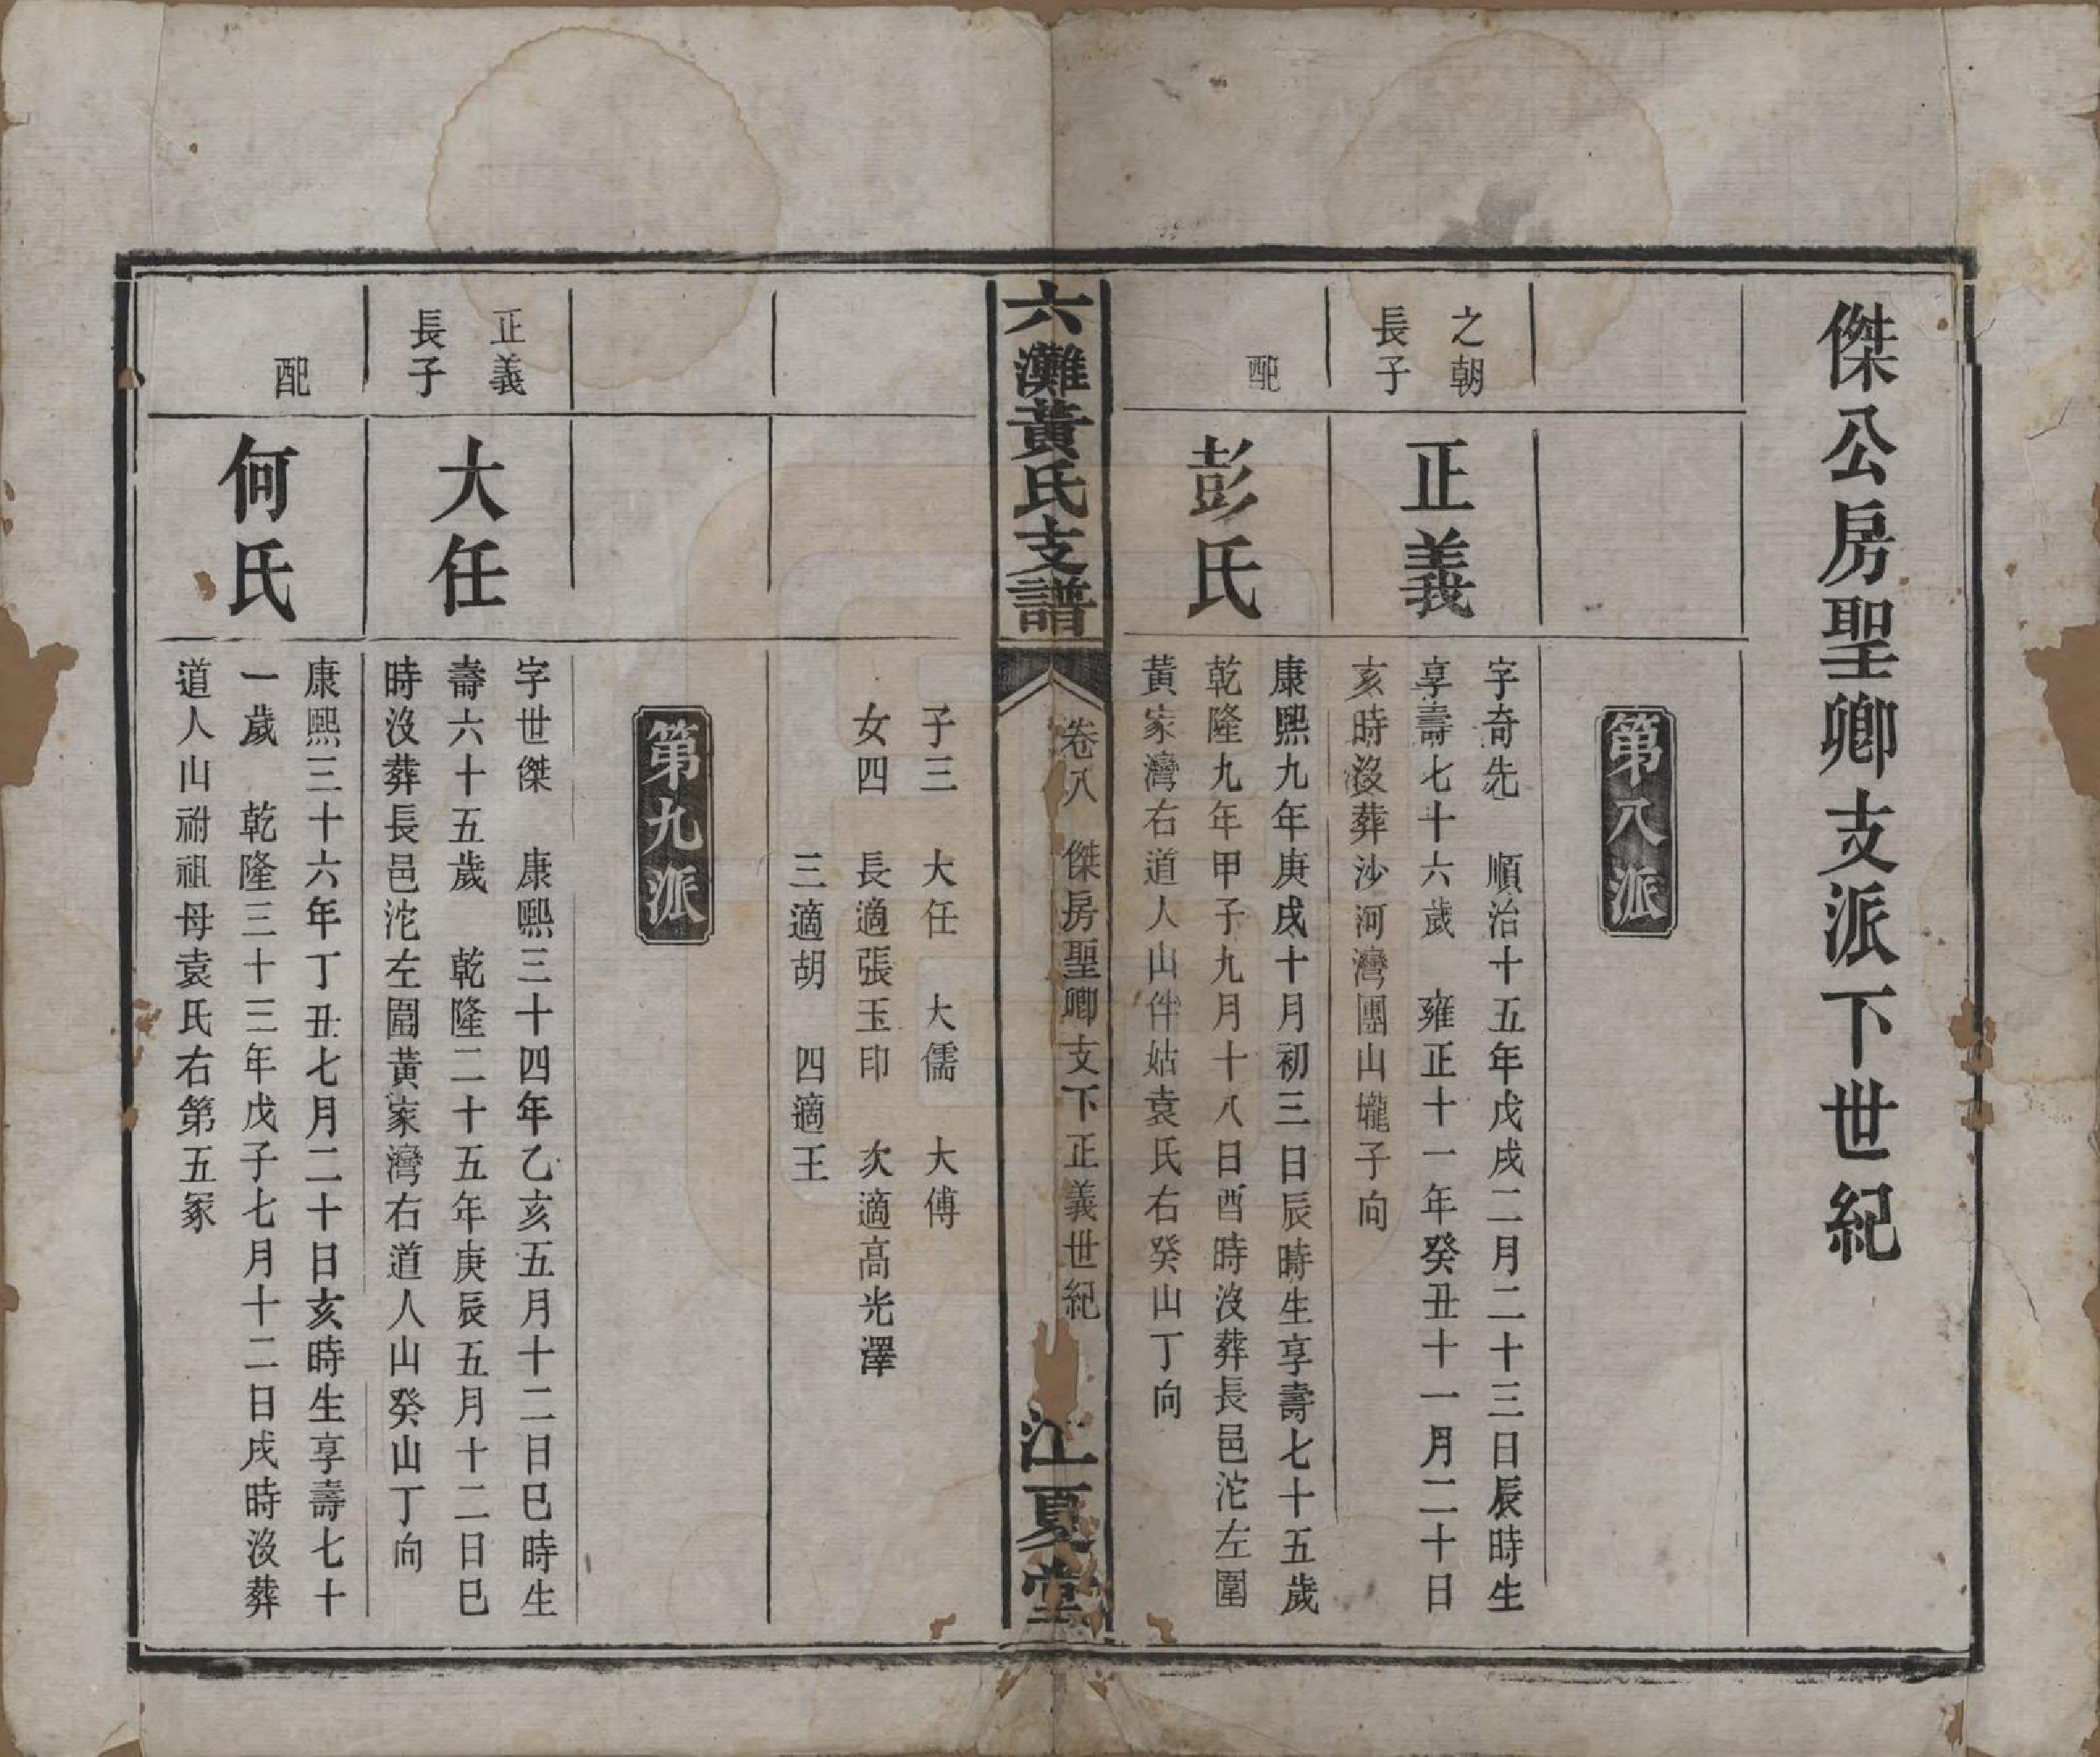 傑公房聖卿支派下世紀
第八派
之朝
長子
正義
字奇先　順治十五年戊戌二月二十三日辰時生
享壽七十六歲　雍正十一年癸丑十一月二十日
亥時沒葬沙河灣團山壠子向
配
彭氏
康熙九年庚戌十月初三日辰時生享壽七十五歲
乾隆九年甲子九月十八日酉時沒葬長邑沱左圍
黃家灣右道人山伴姑袁氏右癸山丁向
六灘黃氏支譜
卷八　傑房聖卿支下正義世紀
江夏堂
子三　大任　大儒　大傅
女四　長適張玉印　次適高光澤
三適胡　四適王
第九派
正義
長子
大任
字世傑　康熙三十四年乙亥五月十二日巳時生
壽六十五歲　乾隆二十五年庚辰五月十二日巳
時沒葬長邑沱左圍黃家灣右道人山癸山丁向
配
何氏
康熙三十六年丁丑七月二十日亥時生享壽七十
一歲　乾隆三十三年戊子七月十二日戌時沒葬
道人山祔祖母袁氏右第五冢